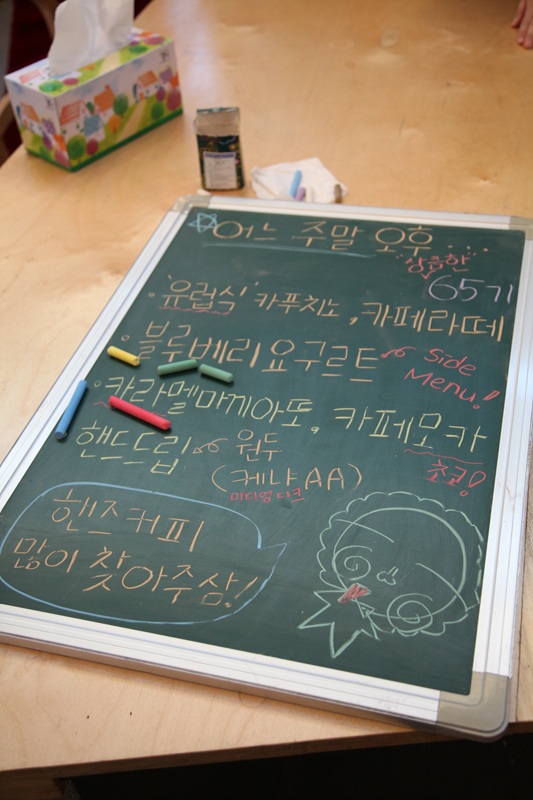 어느 주말 오후...
"상큼한"
657l
· "유럽식" 카푸치노, 카페라떼
· 블루베리요구르트 Side Menu!
· 카라멜마끼아또, 카페모카
초코!
핸드드립 원두
(케냐AA)
미디엄다크
핸즈커피
많이 찾아주삼!